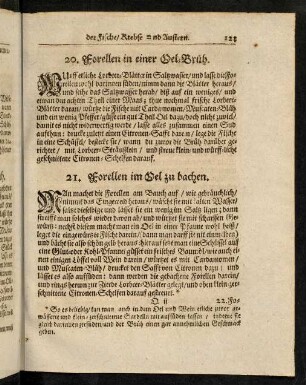 der Fische / Krebse und Austern. 123
20. Forellen in einer Oel-Brüh.
etliche Lorbeer-Blätter in Saltzwasser / und lasse die Fo-
rellen wohl darinnen sieden / nimm dann die Blätter heraus /
und seihe das Saltzwasser herab / biß auf ein weniges / und
etwan den achten Theil einer Maas; thue nochmal frische Lorbeer-
Blätter daran / würtze die Fische mit Cardamomen / Muscaten-Blüh
und ein wenig Pfeffer / giesse ein gut Theil Oel dazu / doch nicht zuviel /
damit es nicht widerwertig werde / lasse alles zusammen einen Sud
aufthun / drucke zuletzt einen Citronen-Safft darein / lege die Fische
in eine Schüssel / wann zuvor die Brüh darüber ge-
richtet / mit Lorbeer-Sträußlein / und streue klein und würff-
licht geschnittene Citronen-Schelfen darauf.
21. Forellen im Oel zu bachen.
Man machet die Forellen am Bauch auf / wie gebräuchlich /
nimmt das Eingeweid heraus / wäscht sie mit kalten Wasser /
saltzt dieselbige und lässet sie ein wenig im Saltz ligen; dann
man selbiges wieder davon ab / und würtzet sie mit
nechst diesem macht man ein Oel in einer Pfanne wohl heiß /
leget die eingewürtzte Fische darein / dann man darff sie nicht
und bächt sie also schön gelb heraus; hierauf setzt man eine Schüssel auf
eine Glut oder Kohl-Pfannen / giesset ein frisches Baumöl / wie auch
einen einigen Löffel voll Wein darein / würtzt es mit Cardamomen /
und Muscaten-Blüh / drucket den Safft von Citronen dazu; und
lässet es also aufsieden: dann werden die gebachene Forellen darein /
und rings herum zur Zierde Lorbeer-Blätter gelegt / und oben klein ge-
schnittene Citronen-Schelfen darauf gestreuet. *
Q ij 22. Fo-
* So es beliebig / kan man auch in dem Oel und Wein etliche zuvor ge-
wässerte und klein-zerschnittene Sardelln mit aufsieden lassen /
darinnen und der Brüh einen gar annehmlichen Geschmack
geben.